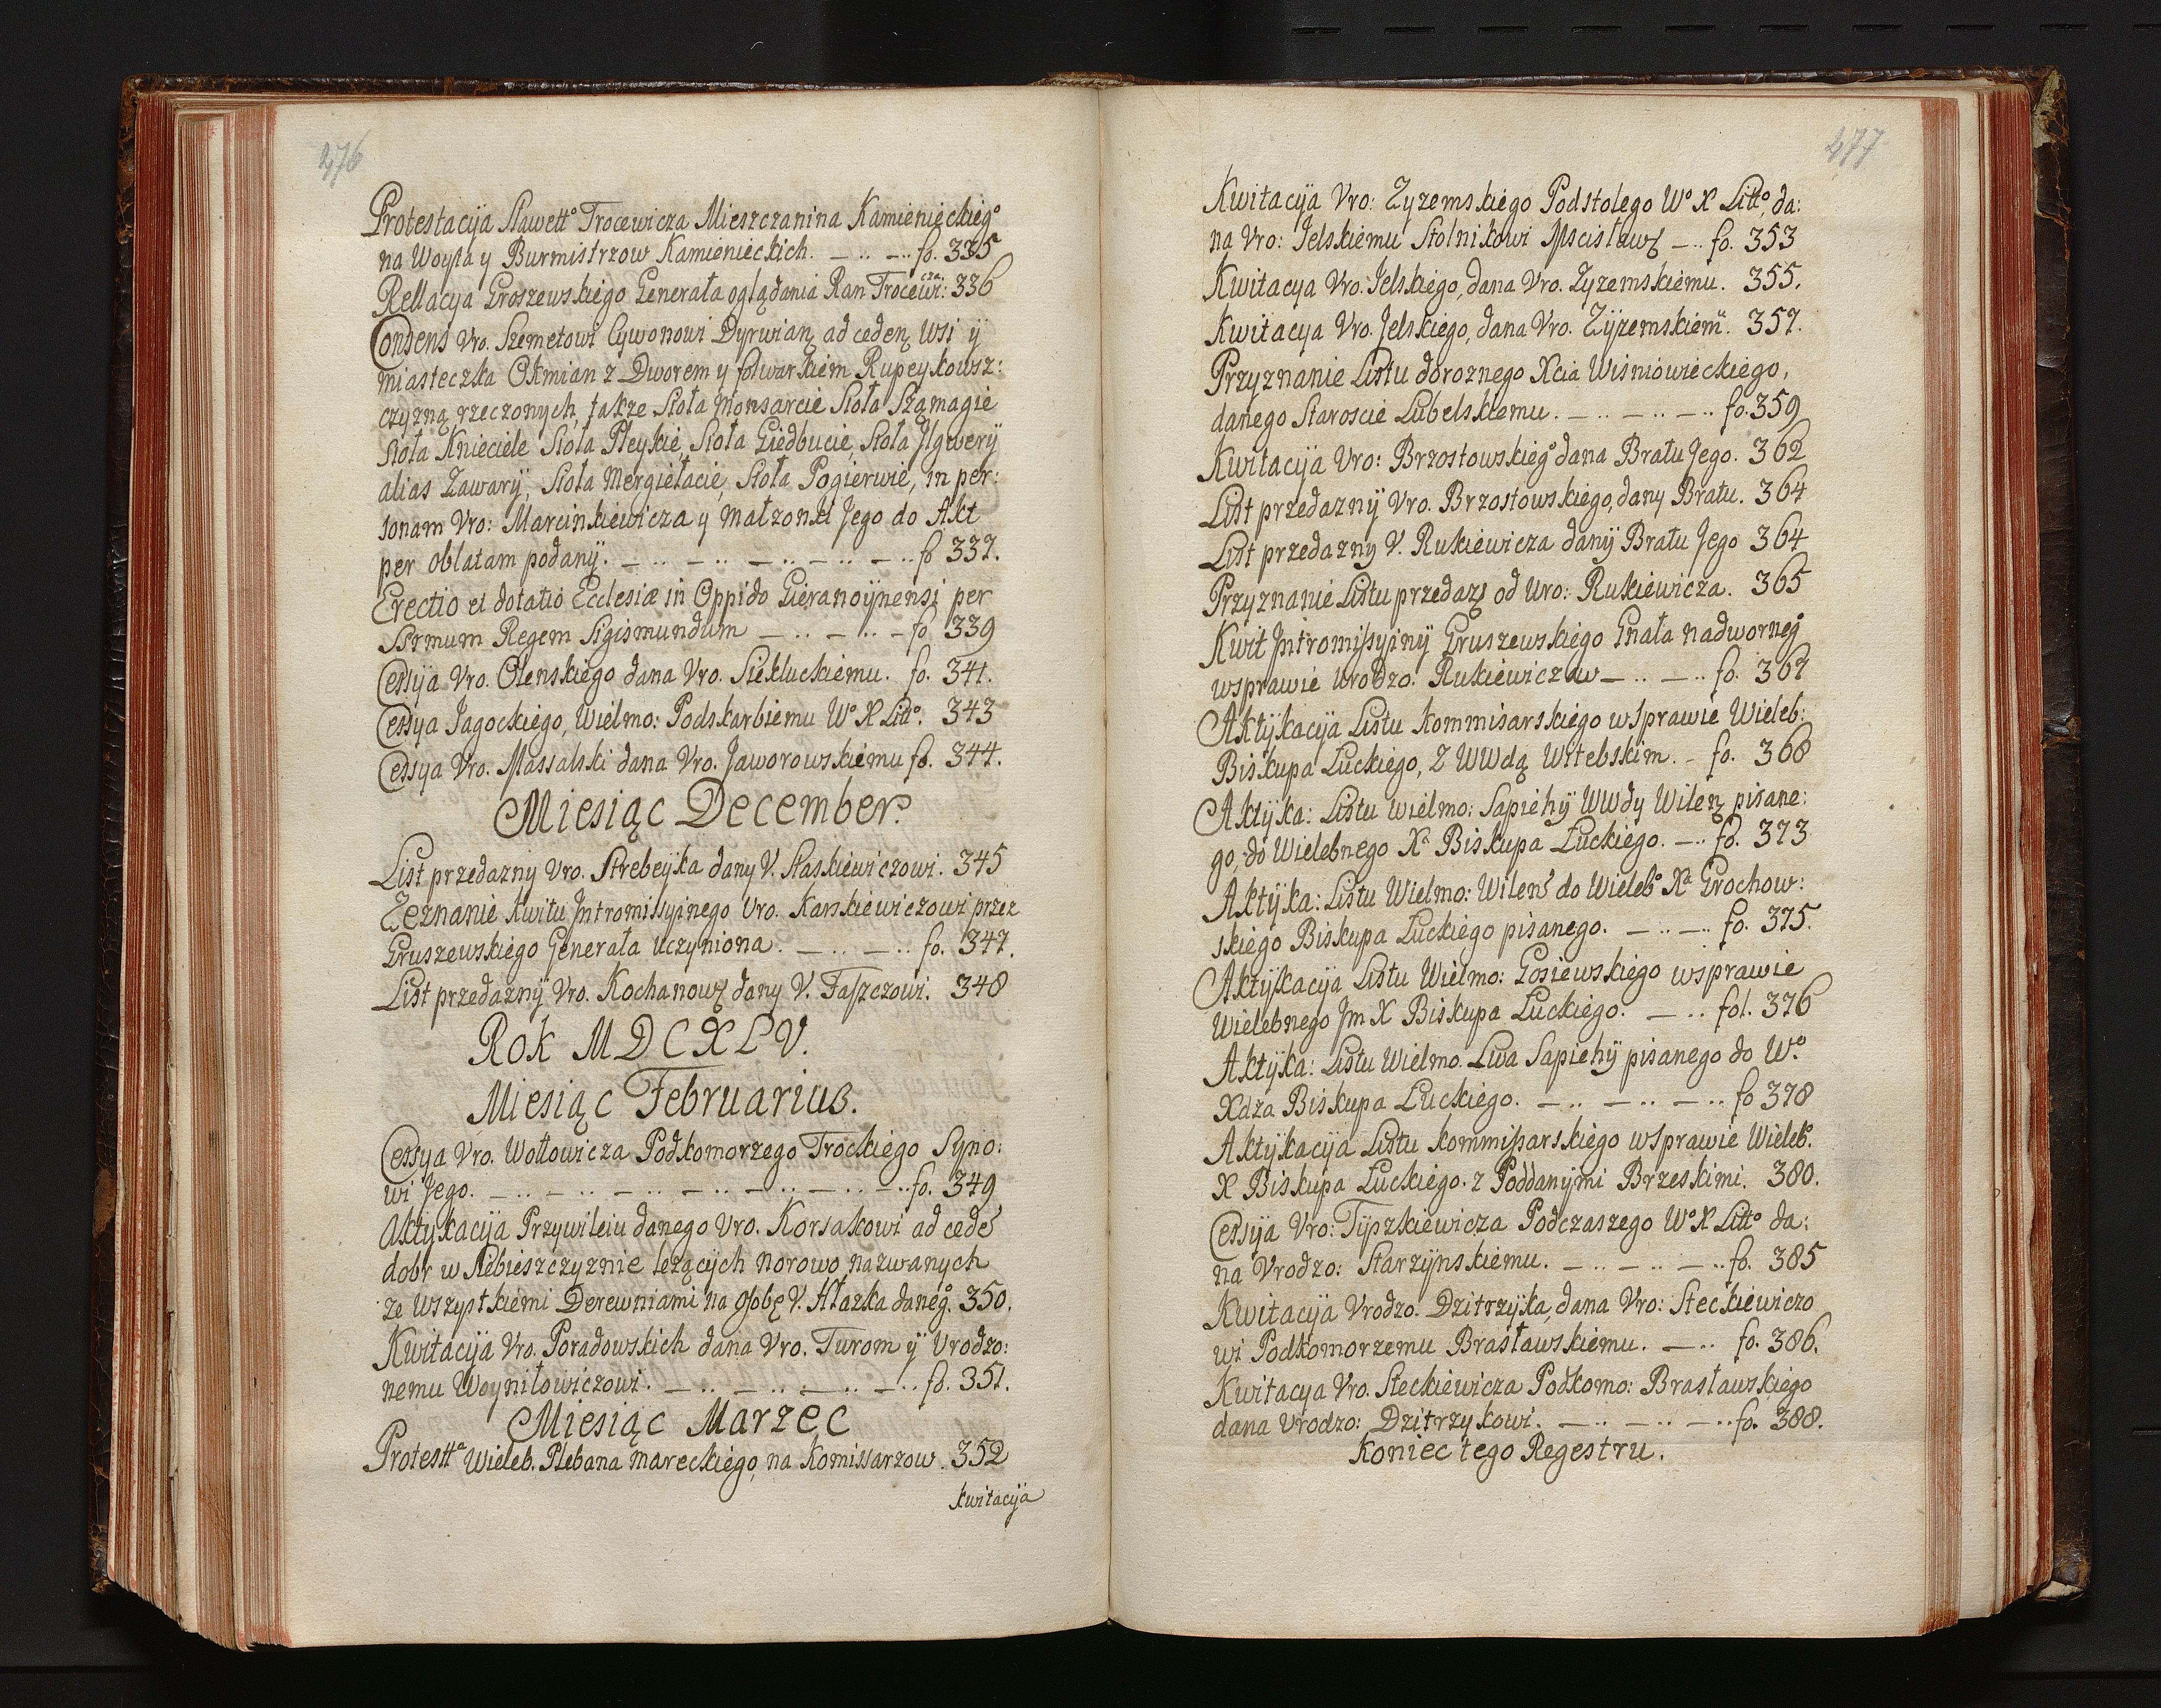 476
Protestacija Sławett° Trocewicza Mieszczanina Kamienieckieg°
na Woyta y Burmistrzow Kamienieckich. — .. — .. fo. 335
Rellacya Groszewskiego Generała oglądania Ran Trocewi:cza: 336
Consens Vro. Szemetowi Cywonowi Dyrwian ad ceden wsi ÿ
miasteczka Okmian z Dworem y folwarkiem Rupeykowsz:
czyzną rzeczonych, także Sioła Monsarcie Sioła Szamagie
Sioła Knieciele Sioła Pleykie, Sioła Giedbucie, Sioła Jlgwerÿ
alias Zawarÿ, Sioła Mergietacie, Sioła Pogierwie, in per:
sonam Vro: Marcinkiewicza y małżonki Jego do Akt
per oblatam podanÿ. — .. — .. — .. — .. — .. fo 337.
Erectio et dotatio Ecclesiæ in Oppido Gieranoÿnensi per
Ssrmum Regem Sigismundum — .. — .. — fo 339
Cessÿa Vro. Olenskiego dana Vro. Siekluckiemu. fo. 341.
Cessya Jagockiego, Wielmo: Podskarbiemu W° X Litt°. 343
Cessya Vro. Massalski dana Vro. Jaworowskiemu fo. 344.
Miesiąc December.
List przedazny Vro. Strebeyka dany V. Staskiewiczowi. 345
Zeznanie kwitu Intromissyinego Vro. Karskiewiczowi przez
Gruszewskiego Generała uczyniona. — .. — .. fo. 347.
List przedaznÿ Vro. Kochanows dany V. Faszczowi. 348
Rok MDCXLV.
Miesiąc Februarius.
Cessya Vro. Wołłowicza Podkomorzego Trockiego Syno:
wi Jego. — .. — .. — .. — .. — .. — .. — .. fo. 349
Aktykacÿa Przywileiu danego Vro. Korsakowi ad cede
dobr w Siebieszczyznie lezących Norowo nazwanych
ze wszystkiemi Derewniami na osobę V. Hłazka daneg°. 350.
Kwitacÿa Vro. Poradowskich dana Vro. Turom ÿ Urodzo:
nemu Woyniłowiczowi. — .. — .. — .. — .. fo. 351.
Miesiąc Marzec
Protestta Wieleb. Plebana mareckiego, na Komissarzow. 352
Kwitacÿa
477
Kwitacÿa Vro: Zyzemskiego Podstolego W° X Litt°, da:
na Vro: Jelskiemu Stolnikowi Mscisławs — .. fo. 353
Kwitacya Vro. Jelskiego, dana Vro. Zyzemskiemu. 355.
Kwitacya Vro. Jelskiego, dana Vro. Zÿzemskiemu. 357.
Przyznanie Listu doroznego Xcia Wisniowieckiego,
danego Staroscie Lubelskiemu. — .. — .. — .. fo. 359
Kwitacÿa Vro: Brzostowskieg° dana Bratu Jego. 362
List przedaznÿ Vro. Brzostowskiego, dany Bratu. 364
List przedazny V. Rukiewicza danÿ Bratu Jego 364
Przyznanie Listu przedaz od Uro: Rukiewicza. 365
Kwit Intromissyinÿ Gruszewskiego Gnała nadworneg°
wsprawie Urodzo: Rukiewiczow — .. — .. fo. 367
Aktÿkacÿa Listu Kommisarskiego wsprawie Wieleb:
Biskupa Luckiego, z WWdą Witebskim. - fo. 368
Aktÿka: Listu wielmo: Sapiehÿ WWdy Wilen pisane:
go, do Wielebnego Xa Biskupa Łuckiego. — .. fo. 373
Aktÿka: Listu Wielmo: Wilens do Wieleb° Xa Grochow:
skiego Biskupa Łuckiego pisanego. — .. — .. fo. 375.
Aktÿkacÿa Listu Wielmo: Gosiewskiego wsprawie
Wielebnego Jm X Biskupa Łuckiego. — .. fol. 376
Aktÿka: Listu Wielmo. Lwa Sapiehÿ pisanego do W°.
Xdza Biskupa Łuckiego. — .. — .. — .. fo 378
Aktÿkacÿa Listu kommissarskiego wsprawie Wieleb°.
X Biskupa Łuckiego. z Poddanÿmi Brzeskimi. 380.
Cessÿa Vro: Tÿszkiewicza Podczaszego W° X Litt° da:
na Vrodzo: Starzÿnskiemu. — .. — .. — .. fo. 385
Kwitacÿa Vrodzo. Dzitrzÿka, dana Vro: Steckiewiczo
wi Podkomorzemu Brasławskiemu. — .. fo. 386.
Kwitacya Vro. Steckiewicza Podkomo: Brasławskiego
dana Vrodzo: Dzitrzykowi. — .. — .. — .. fo. 388.
Koniec tego Regestru.